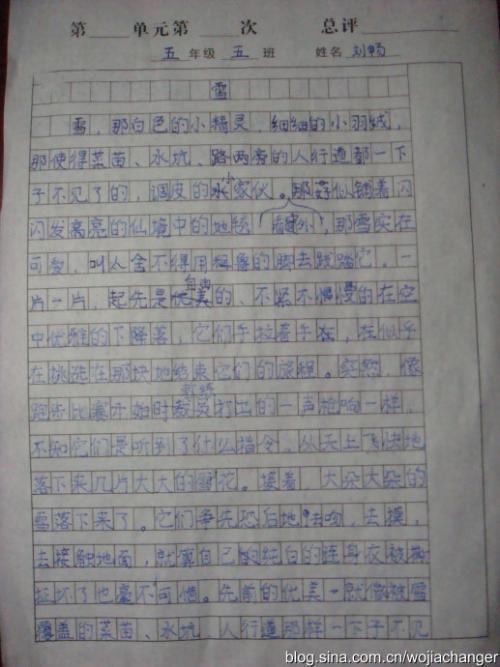 第 单元第 次 总评
五 年级 五 班 姓名 刘畅
雪
雪，那白色的小精灵，细细的小羽绒，
那使得菜苗、水坑、路两旁的人行道都一下
子不见了的，调皮的小家伙。那好似铺着闪
闪发亮的仙境中的地毯 ，那雪实在
可爱，叫人舍不得用 的脚去践踏它。一
片一片，起先是自由优美的、不紧不慢的在空
中优雅的下降落，它们手拉着手在，在似乎
在挑选在那块地结束它们的旅程。突然，像
跑步比赛开始时裁判打出的一声枪响一样，
不知它们是听到了什么指令，从天上飞快地
落下来几片大大的雪花。接着，大朵大朵的
雪落下来了。它们争先恐后地去吻，去摸，
去接触地面，就算自己的纯白的连身衣被
坏了也毫不可惜。先前的优美一就像被雪
覆盖的菜苗、水坑、人行道那样一下子不见
blog.sina.com.cn/wojiachanger